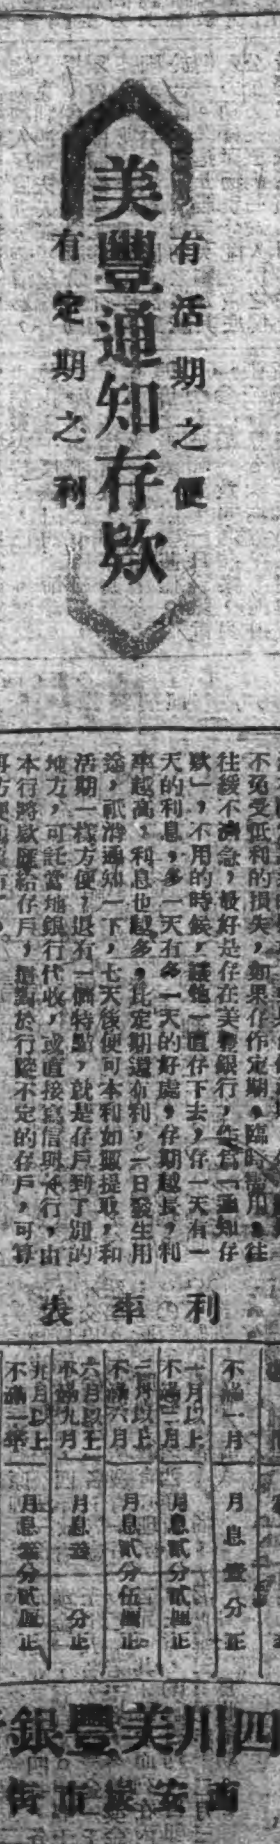 有活期之便
美豐通知存欵
有定期之利
不免受低利的損失，如果存作定期，臨時需用，往
往緩不濟急，最好是存在美豐銀行，作為「通知存
欵」，不用的時候，讓他一直存下去，存一天有一
天的利息，多一天有多一天的好處，存期越長，利
率越高，利息也越多，比定期還有利，一日發生用
途，祇消通知一下，七天後便可本利如數提取，和
活期一樣方便，還有一個特點，就是存戶到了別的
地方，可託當地銀行代收，或直接寫信與本行，由
本行將欵匯給存戶，這對於行蹤不定的存戶，可算
利率表
不滿一月 月息壹分正
一月以上不滿三月 月息貳分貳厘正
三月以上不滿六月 月息貳分伍厘正
六月以上不滿九月 月息叁分正
九月以上不滿一年 月息叁分貳厘正
四川美豐銀
西安炭市街